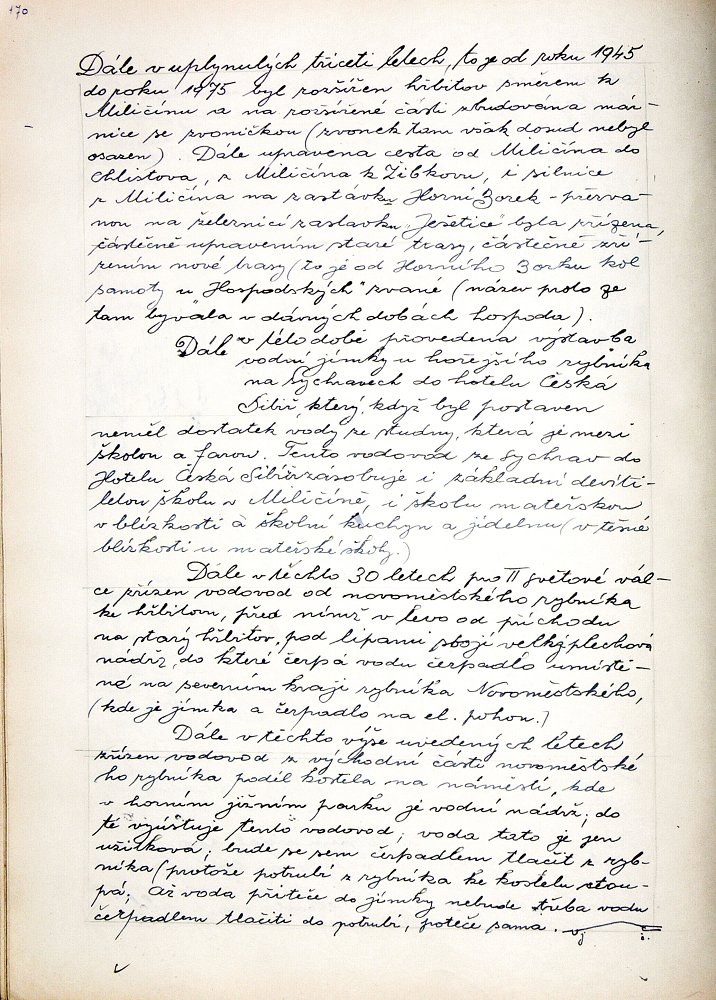 170
Dále v uplynulých třiceti letech, to je od roku 1945
do roku 1975 byl rozšířen hřbitov směrem k
Miličínu a na rozšířené části zbudována már-
nice se zvoničkou (zvonek tam však dosud nebyl
osazen). Dále upravena cesta od Miličína do
Chlistova, z Miličína k Žibkovu, i silnice
z Miličína na zastávku Horní Borek - přezva-
nou na železniční zastávku „Ješetice" byla zřízena,
částečně upravením staré trasy, částečně zří-
zením nové trasy (to je od Horního Borku kol
samoty u Hospodských" zvané (název proto že
tam bývala v dávných dobách hospoda).
Dále v této době provedena výstavba
vodní jímky u hořejšího rybníka
na Sychravech do hotelu Česká
Sibiř, který, když byl postaven
neměl dostatek vody ze studny, která je mezi
školou a farou. Tento vodovod ze Sychrav do
Hotelu Česká Sibiř zásobuje i základní devíti-
letou školu v Miličíně, i školu mateřskou
v blízkosti a školní kuchyn a jídelnu (v těsné
blízkosti u mateřské školy.)
Dále v těchto 30 letech po II světové vál-
ce zřízen vodovod od novoměstského rybníka
ke hřbitovu, před nímž v levo od příchodu
na starý hřbitov, pod lipami stojí velká plechová
nádrž, do které čerpá vodu čerpadlo umístě-
né na severním kraji rybníka Novoměstského,
(kde je jímka a čerpadlo na el. pohon.)
Dále v těchto výše uvedených letech
zřízen vodovod z východní části novoměstské
ho rybníka podél kostela na náměstí, kde
v horním jižním parku je vodní nádrž; do
té vyúsťuje tento vodovod; voda tato je jen
užitková; bude se sem čerpadlem tlačit z ryb-
níka (protože potrubí z rybníka ke kostelu stou-
pá; Až voda přiteče do jímky nebude třeba vodu
čerpadlem tlačiti do potrubí, poteče sama.